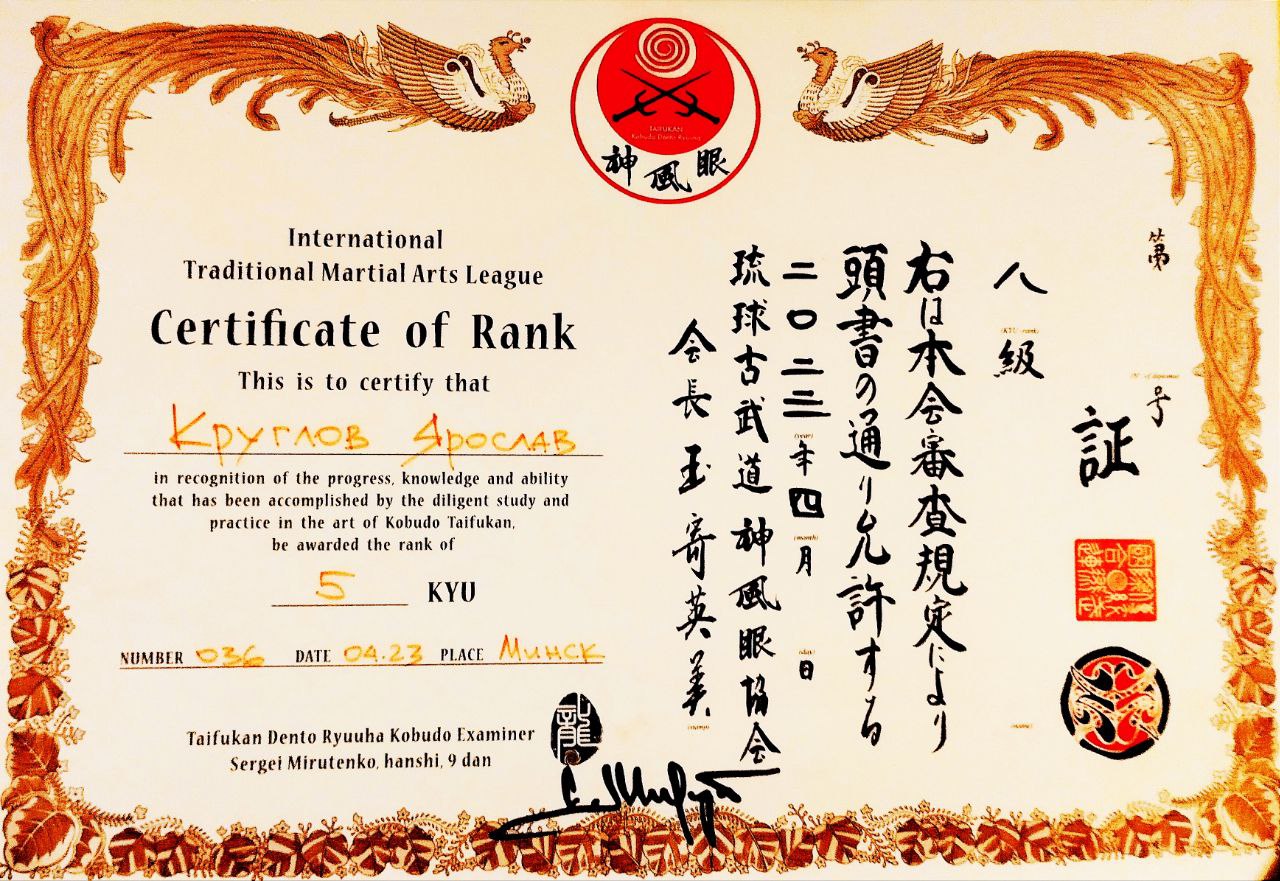 TAIFUKAN
Kobudo Dento Ryuuha
神風眼
International
Traditional Martial Arts League
Certificate of Rank
This is to certify that
Круглов Ярослав
in recognition of the progress, knowledge and ability
that has been accomplished by the diligent study and
practice in the art of Kobudo Taifukan,
be awarded the rank of
5 KYU
NUMBER 036 DATE 04.23 PLACE Минск
Taifukan Dento Ryuuha Kobudo Examiner
Sergei Mirutenko, hanshi, 9 dan
龍
第 号
証
八級
(KYU rank)
右は本会審査規定により
頭書の通り允許する
二〇二三年四月 日
(year)
(month)
(day)
琉球古武道神風眼協会
会長玉寄英美
(name)